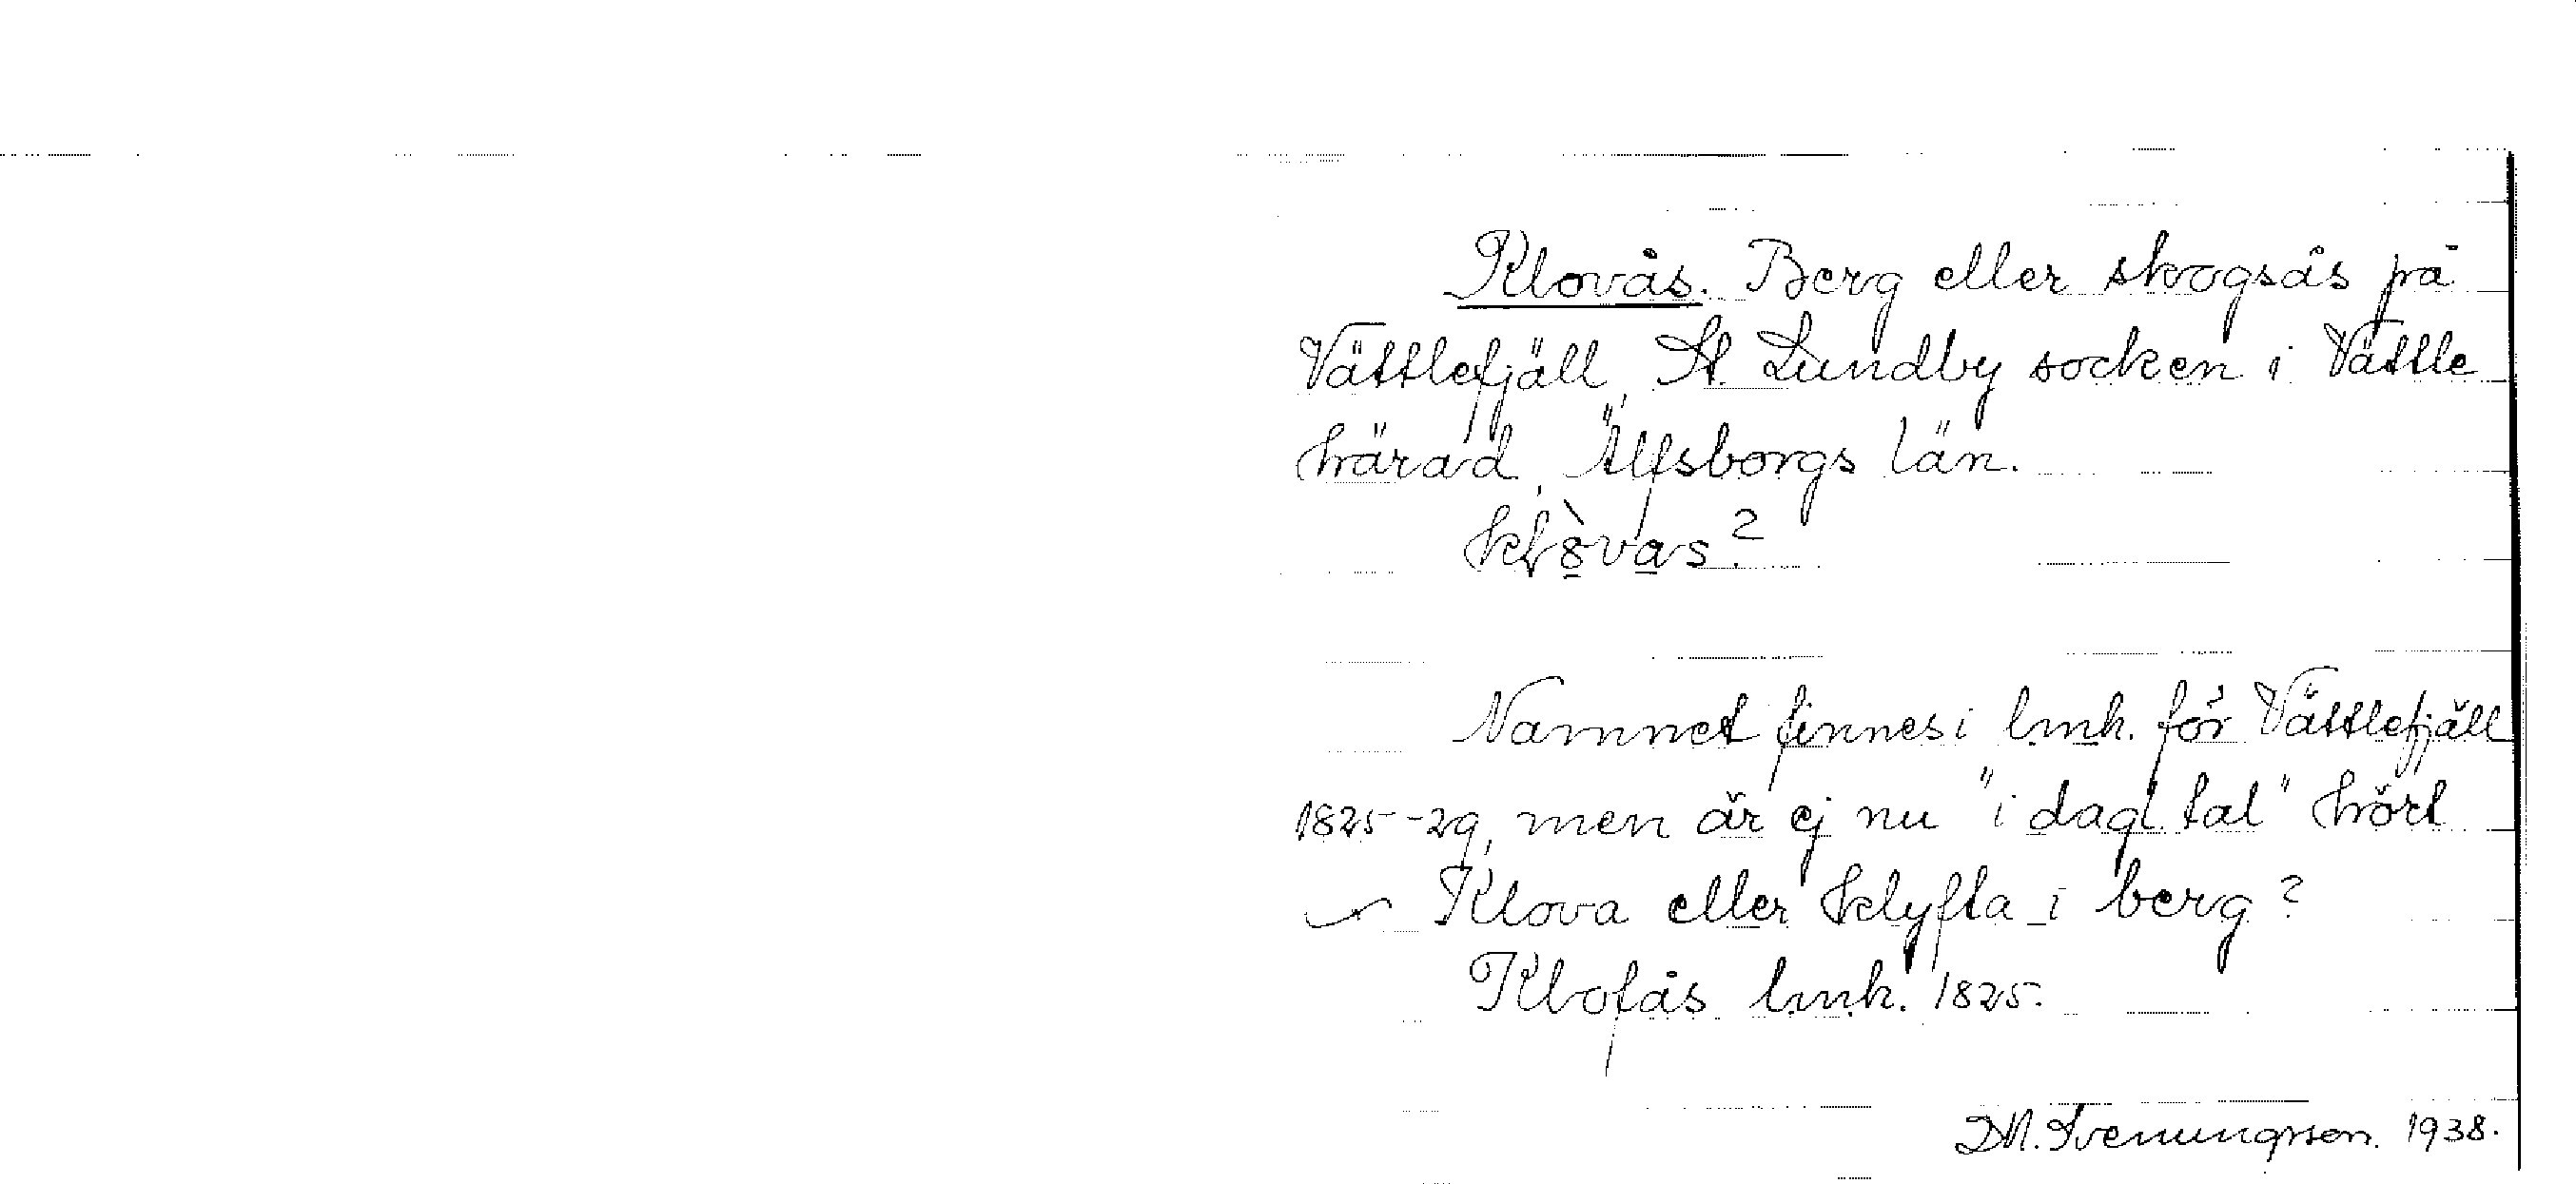 Klovås. Berg eller skogsås på
Vättlefjäll, St. Lundby socken i Vättle
härad, Älfsborgs län.
Namnet finnes i lmk. för Vättlefjäll
1825-29, men är ej nu "i dagl. tal" hört
Klova eller klyfta i berg?
Klofås lmk. 1825.
D.M. Svenungsson. 1938.